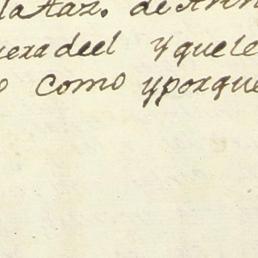 la Haz. de Ann
uera deel y que le
o como y porque